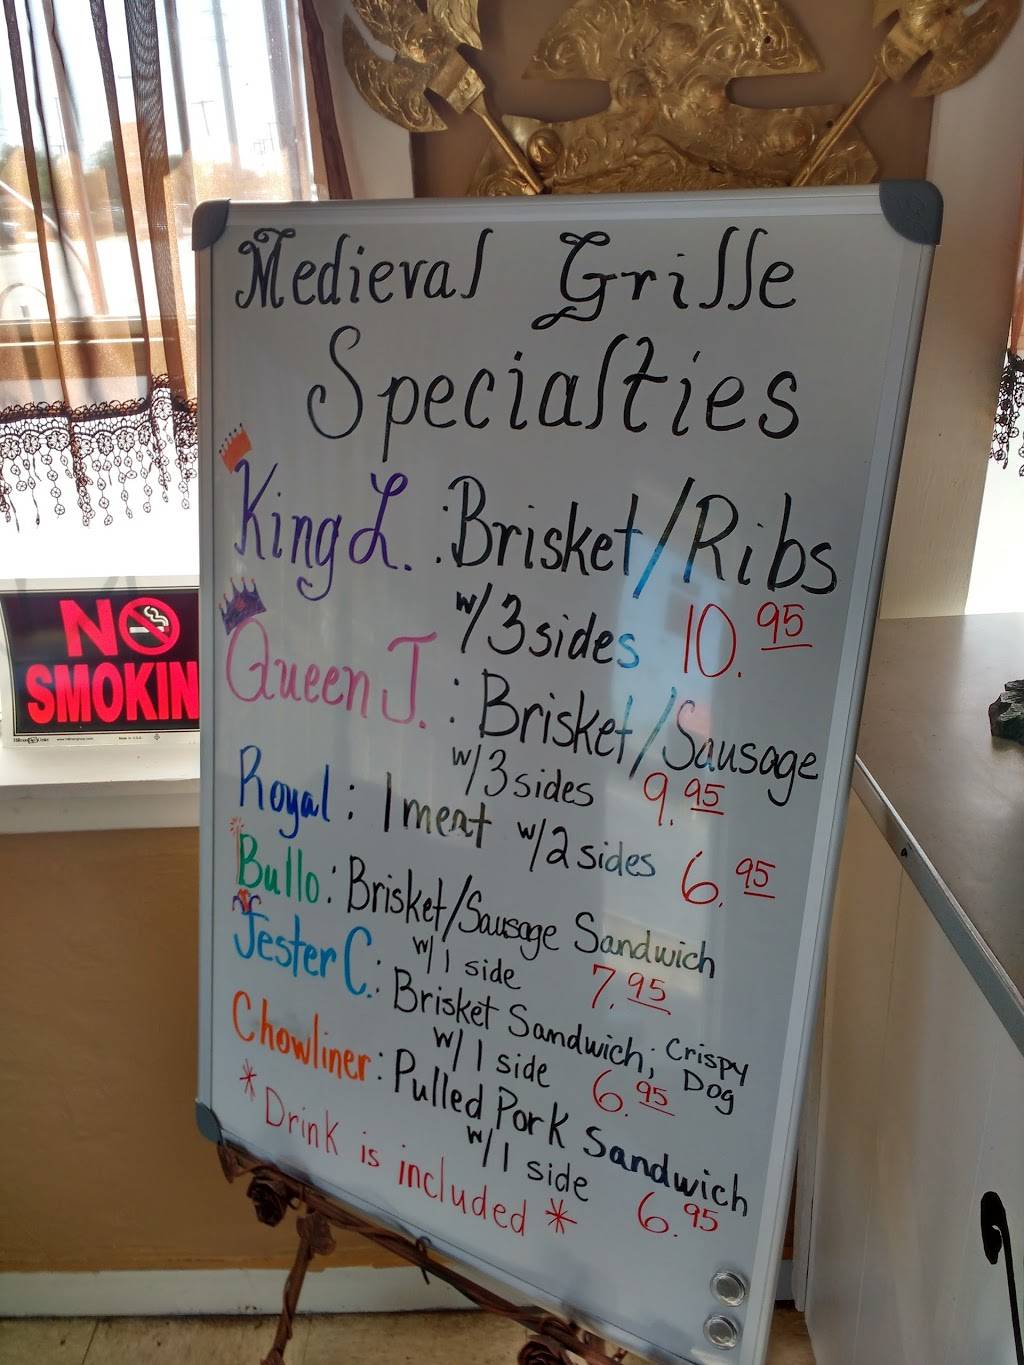 Medieval Grille
Specialties
King L. : Brisket/Ribs
w/3 sides 10.95
Queen J. : Brisket/Sausage
w/3 sides 9.95
Royal : 1 meat w/2 sides 6.95
Bullo : Brisket/Sausage Sandwich
w/1 side 7.95
Jester C. : Brisket Sandwich; Crispy Dog
w/1 side 6.95
Chowliner : Pulled Pork Sandwich
w/1 side 6.95
* Drink is included *
NO
SMOKIN